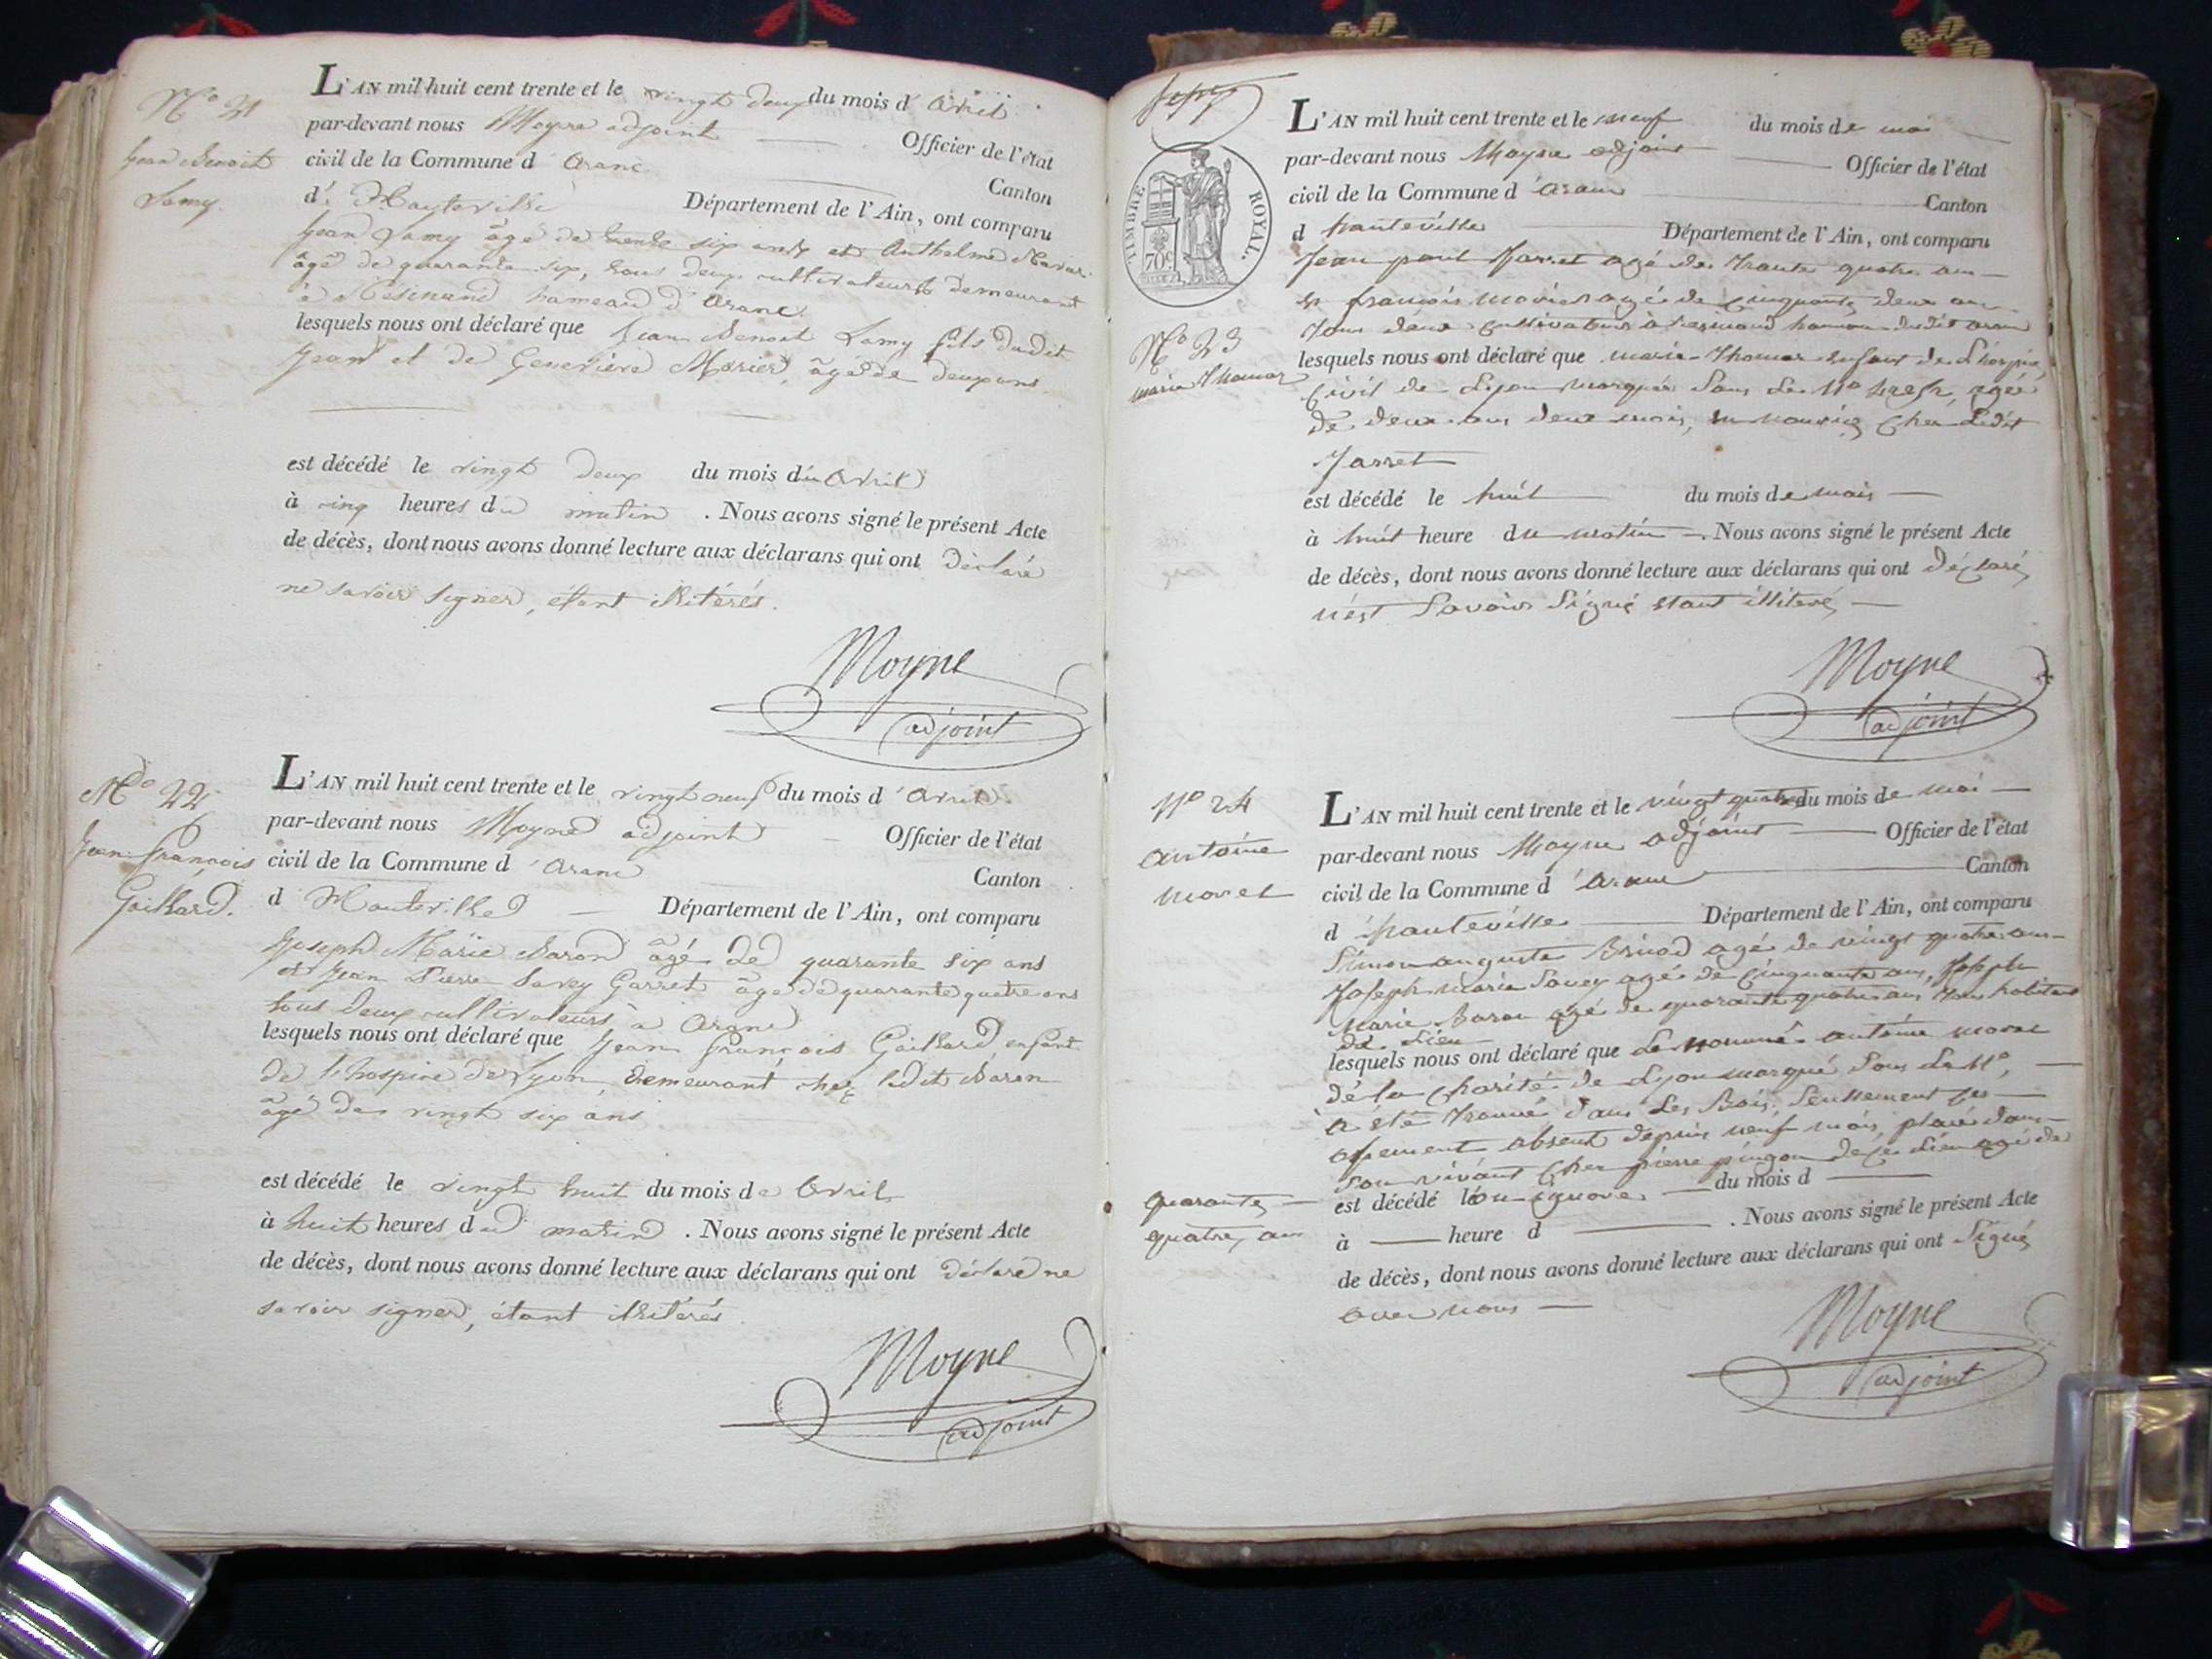 N.º 21
Jean Benoit
Lamy.
L'AN mil huit cent trente et le vingt deux du mois d'Avril
par-devant nous Moyne adjoint Officier de l'état
civil de la Commune d'Aranc Canton
d' Département de l'Ain, ont comparu
Jean Lamy âgé de trente six ans et Anthelme
âgé de quarante six, tous deux cultivateurs demeurant
à Résinand hameau d'Aranc
lesquels nous ont déclaré que Jean Benoit Lamy fils dudit
Jean et de Geneviève Morier, âgé de deux ans
est décédé le vingt deux du mois d'Avril
à cinq heures du matin. Nous avons signé le présent Acte
de décès, dont nous avons donné lecture aux déclarans qui ont déclaré
ne savoir signer, étant illitérés.
Moyne
adjoint
N.º 22
Jean François
Gaillard.
L'AN mil huit cent trente et le vingt neuf du mois d'Avril
par-devant nous Moyne adjoint Officier de l'état
civil de la Commune d'Aranc Canton
d Hauteville Département de l'Ain, ont comparu
Joseph Marie Baron âgé de quarante six ans
et Jean Pierre Savey Garret âgé de quarante quatre ans
tous deux cultivateurs à Aranc
lesquels nous ont déclaré que Jean François Gaillard, enfant
de l'hospice de Lyon demeurant chez ledit Baron
âgé de vingt six ans
est décédé le vingt huit du mois de Avril
à huit heures du matin. Nous avons signé le présent Acte
de décès, dont nous avons donné lecture aux déclarans qui ont déclaré ne
savoir signer, étant illitérés
Moyne
adjoint
TIMBRE ROYAL.
70c
N.º 23
marie Thomas
L'AN mil huit cent trente et le neuf du mois de mai
par-devant nous Moyne adjoint Officier de l'état
civil de la Commune d'aranc Canton
d hauteville Département de l'Ain, ont comparu
Jean agé de trante quatre ans
et francois morier agé de Cinquante deux ans
Tous deux Cultivateurs à resinand hameau dudit aranc
lesquels nous ont déclaré que marie Thomas enfant de L'hospice
Civil de Lyon marquée Sous Le N.º agée
de deux ans deux mois, en nourice Chez Ledit
est décédé le huit du mois de mais
à huit heure du matin. Nous avons signé le présent Acte
de décès, dont nous avons donné lecture aux déclarans qui ont déclaré
n'est Savoir Signé étant illiteré
Moyne
adjoint
N.º 24
antoine
morel
L'AN mil huit cent trente et le vingt quatre du mois de mai
par-devant nous Moyne adjoint Officier de l'état
civil de la Commune d'aranc Canton
d'hauteville Département de l'Ain, ont comparu
Simon auguste agé de vingt quatre ans
Joseph marie Savey agé de Cinquante ans, Joseph
marie Baron agé de quarante quatre ans, Tous habitant
de Lieu
lesquels nous ont déclaré que Le nommé antoine morel
de la Charité de Lyon marqué Sous Le N.º,
a été trouvé dans Les Bois, Seullement Ses
ossement absent depuis neuf mois, placé dans
son vivant Chez pierre pingon de Ce Lieu agé de
quarante
quatre ans
est décédé l'on ignore du mois d
à heure d . Nous avons signé le présent Acte
de décès, dont nous avons donné lecture aux déclarans qui ont Signé
avec nous
Moyne
adjoint